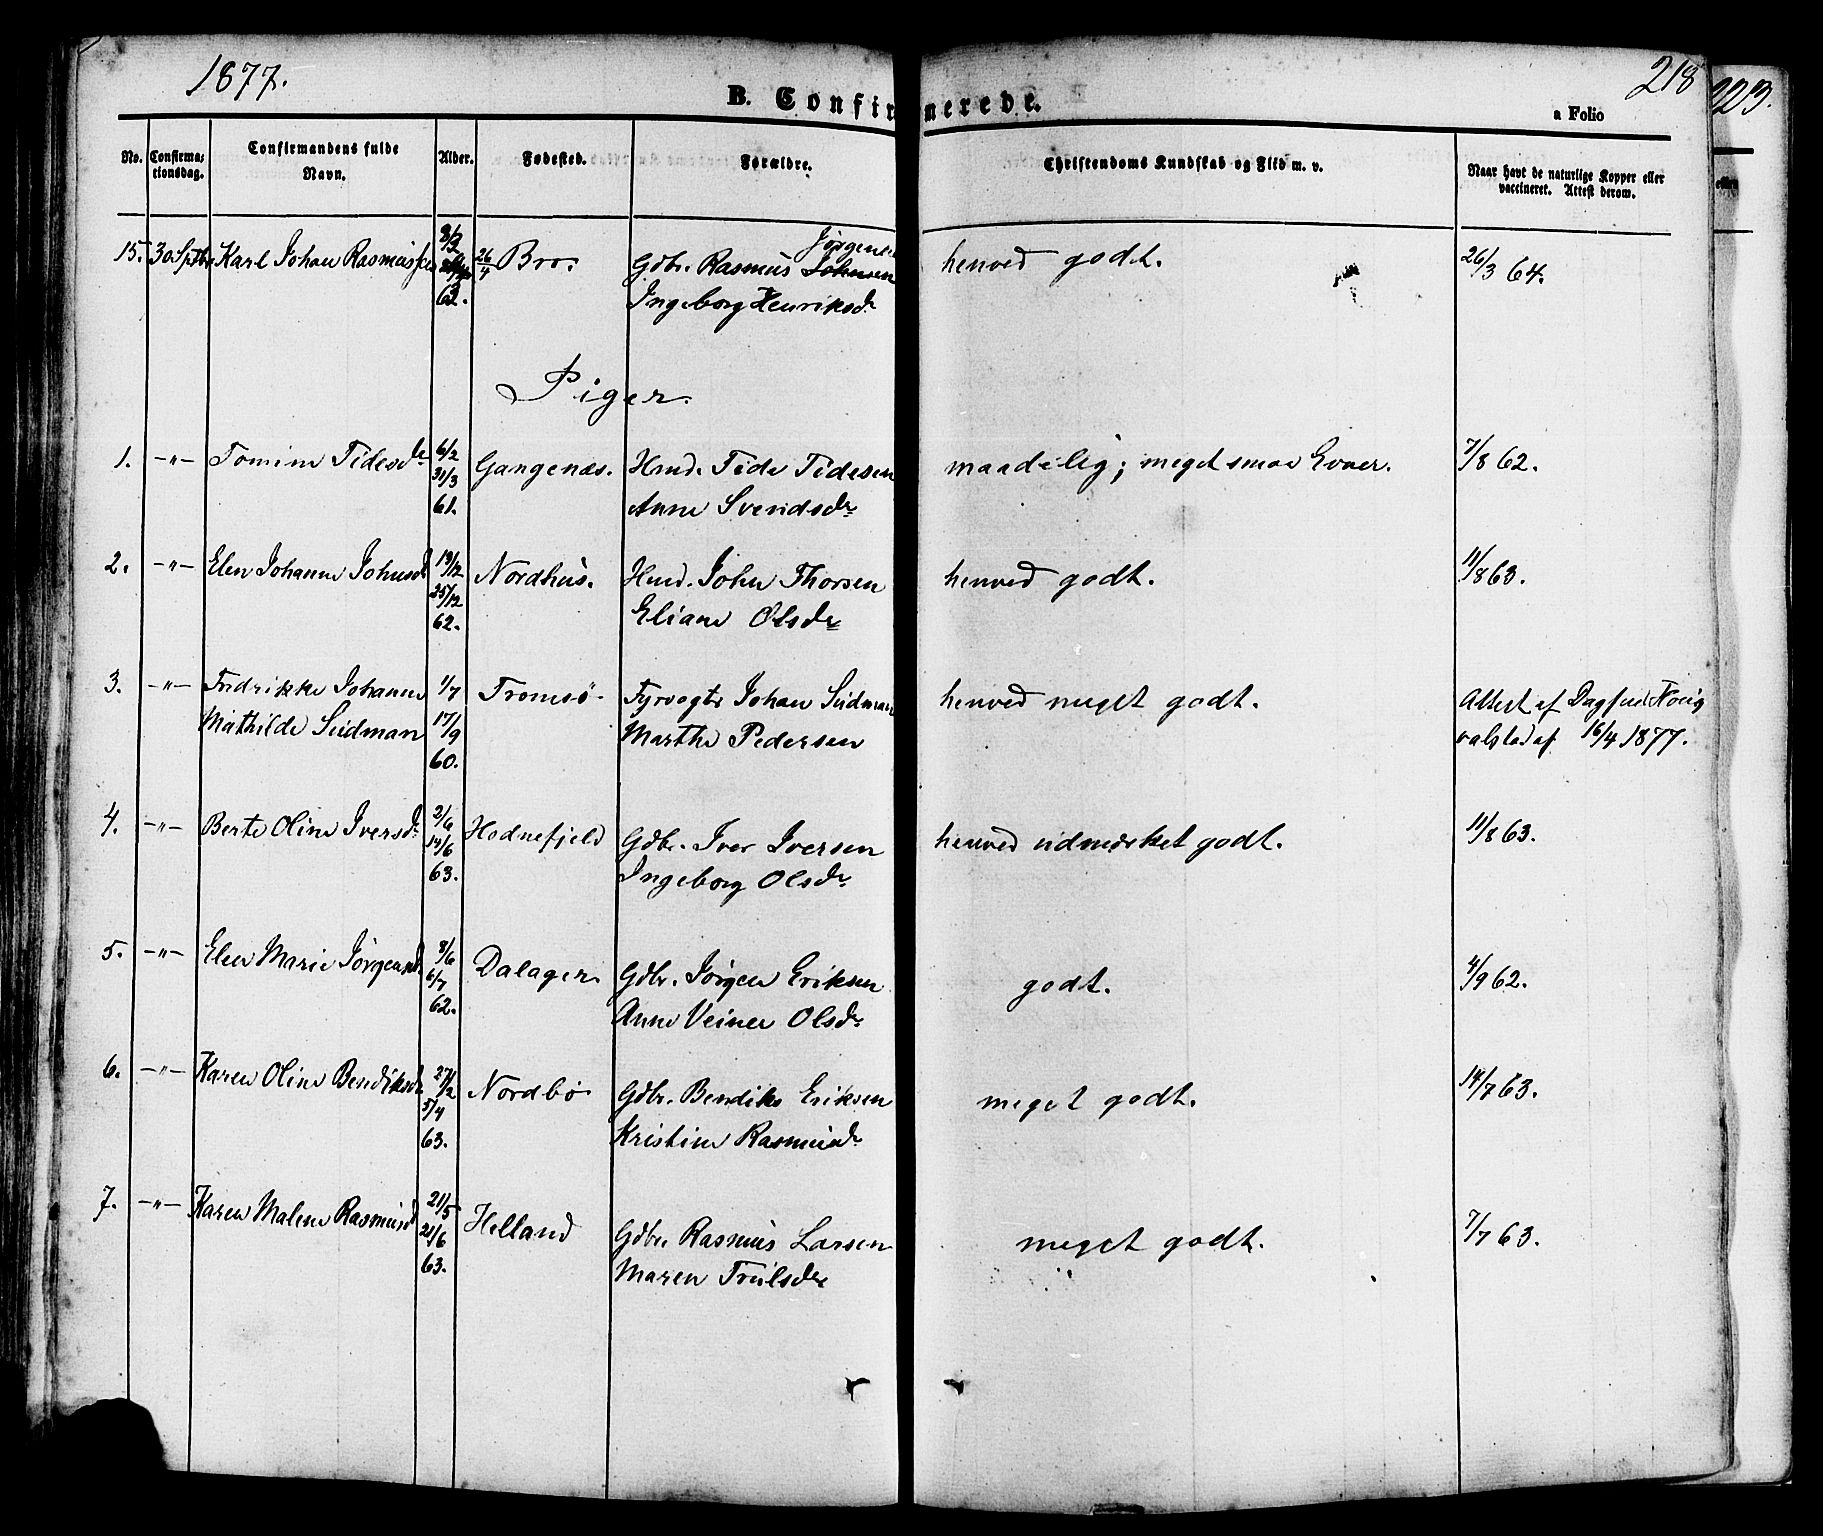 1877.
218
223.
B. Confirmerede.
a Folio
No. Confirmationsdag. Confirmandens fulde Navn. Alder. Fødested. Forældre. Christendoms Kundskab og Flid m. v. Naar havt de naturlige Kopper eller vaccineret. Attest derom.
eller
15. 30 Sptbr Karl Johan Rasmussen 8/3 26/4 Bro. Gdbr. Rasmus Johnsen Jørgensen henved godt. 26/3 64.
62. Ingeborg Henriksdr
Piger.
1. -"- Tomine Tidesdr 6/2 Gangenæs. Hmd. Tide Tidesen maadelig; meget smaa Evner. 7/8 62.
31/3 Anne Svendsdr
61.
2. -"- Elen Johanne Johnsd 19/12 Nordhus. Hmd. John Thorsen henved godt. 11/8 63.
25/12 Eliane Olsdr
62.
3. -"- Fredrikke Johanne 1/7 Tromsø. Fyrvogter Johan Sudman henved meget godt. Attest af Dagfin
Mathilde Sudman 17/9 Marthe Pedersen 16/4 1877.
60.
4. -"- Berte Oline Iversdr 2/6 Hodnefjeld Gdbr. Iver Iversen henved udmærket godt. 11/8 63.
14/6 Ingeborg Olsdr
63.
5. -"- Elen Marie Jørgensd 8/6 Dalager Gdbr. Jørgen Eriksen godt. 4/9 62.
6/7 Anne Veiner Olsdr
62.
6. -"- Karen Oline Bendiksd 27/2 Nordbø Gdbr. Bendiks Eriksen meget godt. 14/7 63.
5/4 Kristine Rasmusdr
63.
7. -"- Karen Malene Rasmusd 21/5 Helland Gdbr. Rasmus Larsen meget godt. 7/7 63.
21/6 Maren Trulsdr
63.